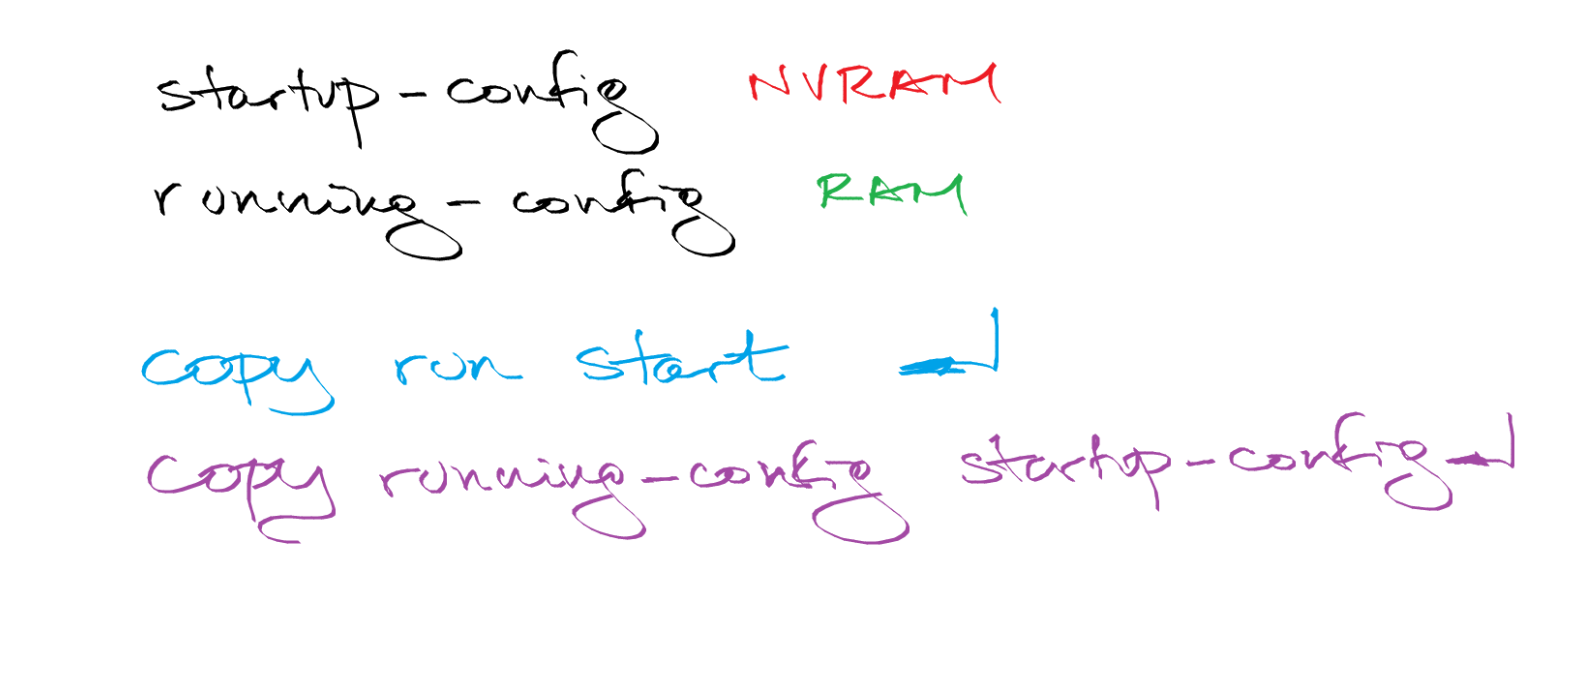 startup-config NVRAM
running-config RAM
copy run start ↵
copy running-config startup-config ↵